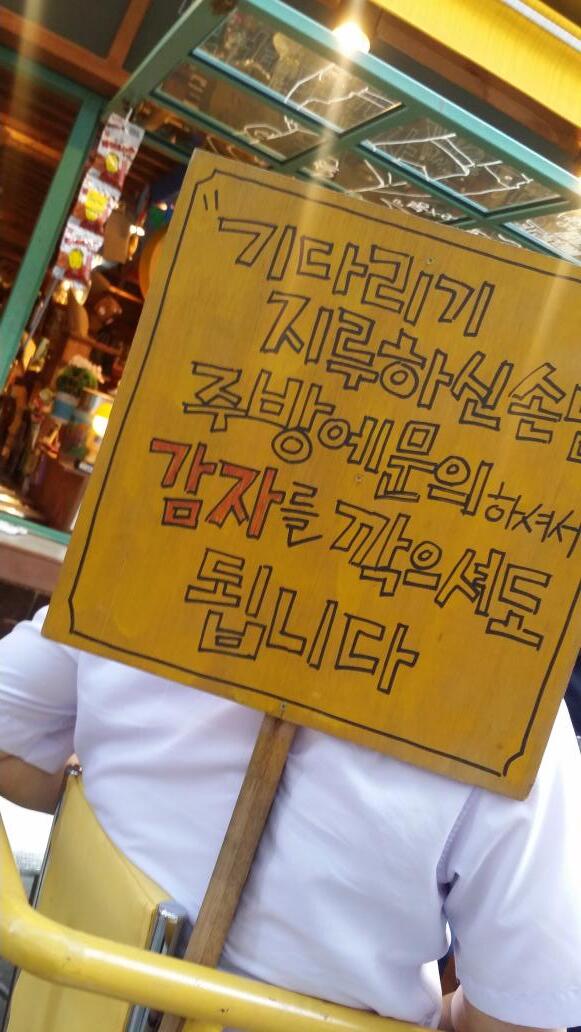 "기다리기
지루하신손님
주방에문의하셔서
감자를 깎으셔도
됩니다